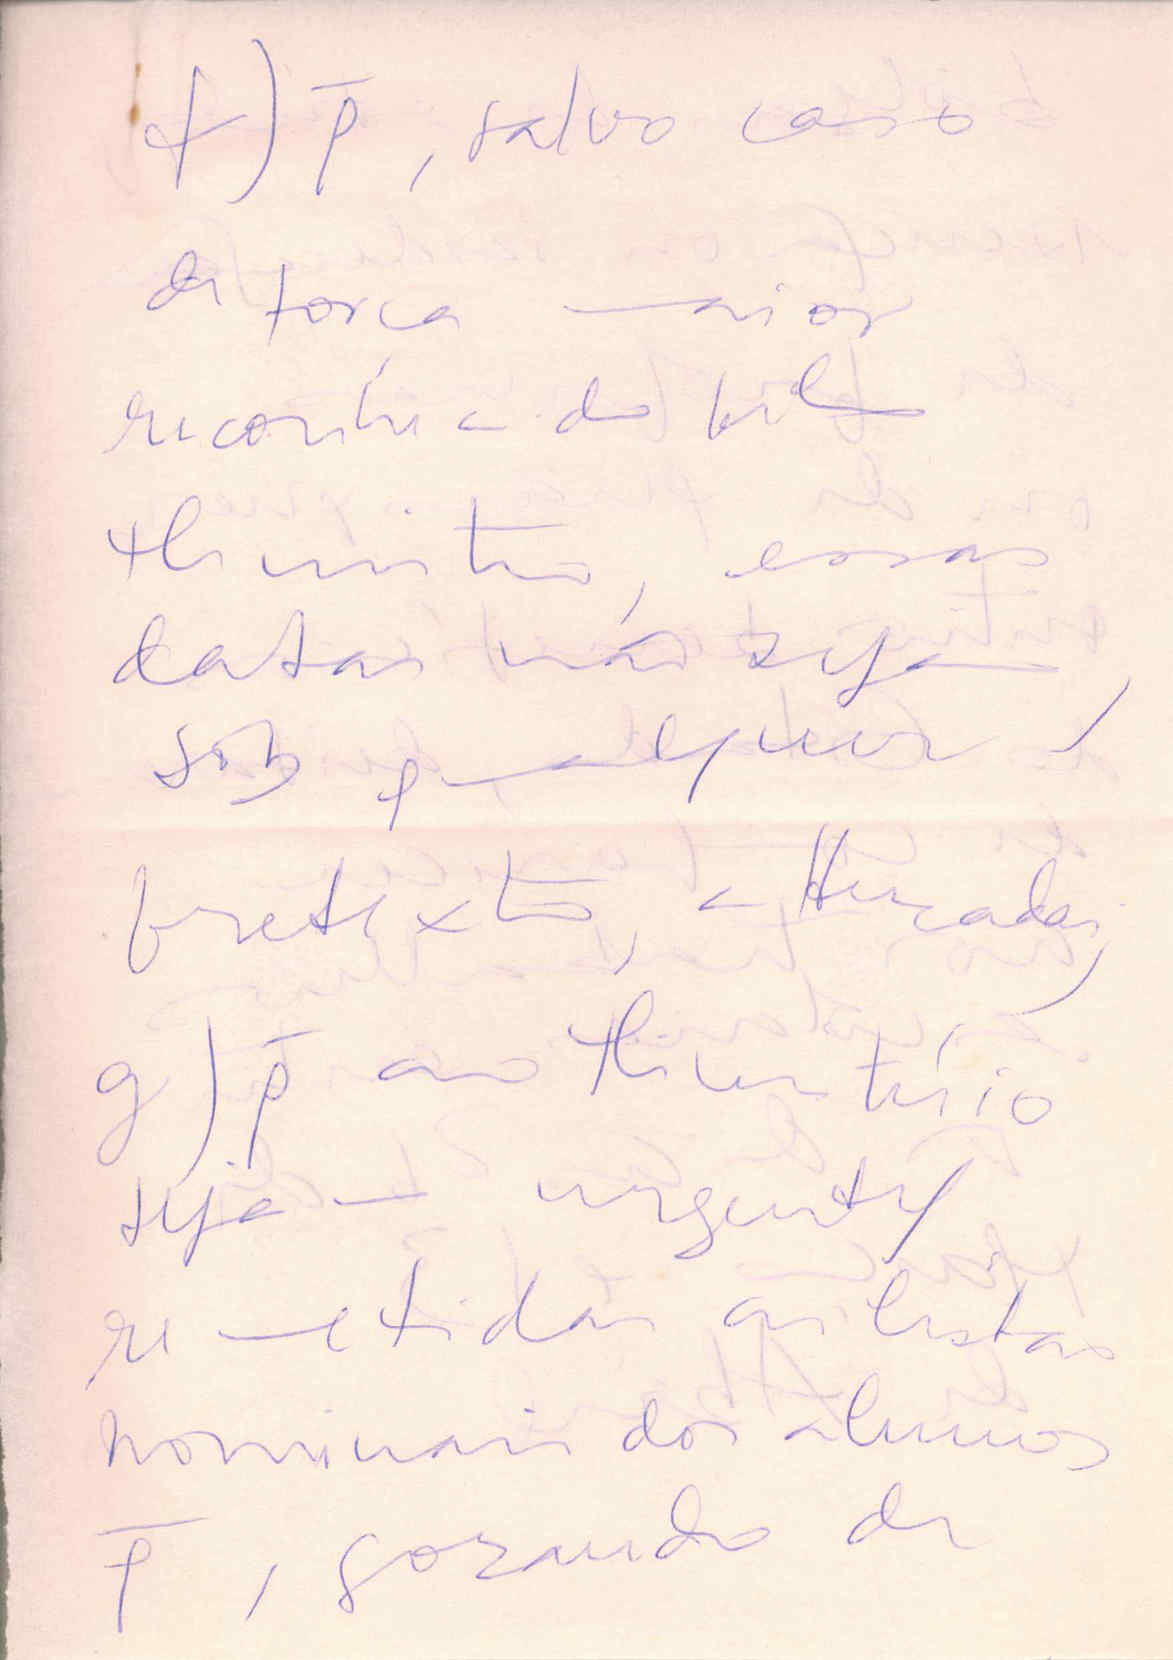 f) p̄, salvo caso
de força maior
reconhecido pelo
Ministro, essas
datas não sejam,
sob qualquer
pretexto, alteradas,
g) p̄ ao Ministério
sejam urgente/
remetidas as listas
nominais dos alunos
p̄, gozando de